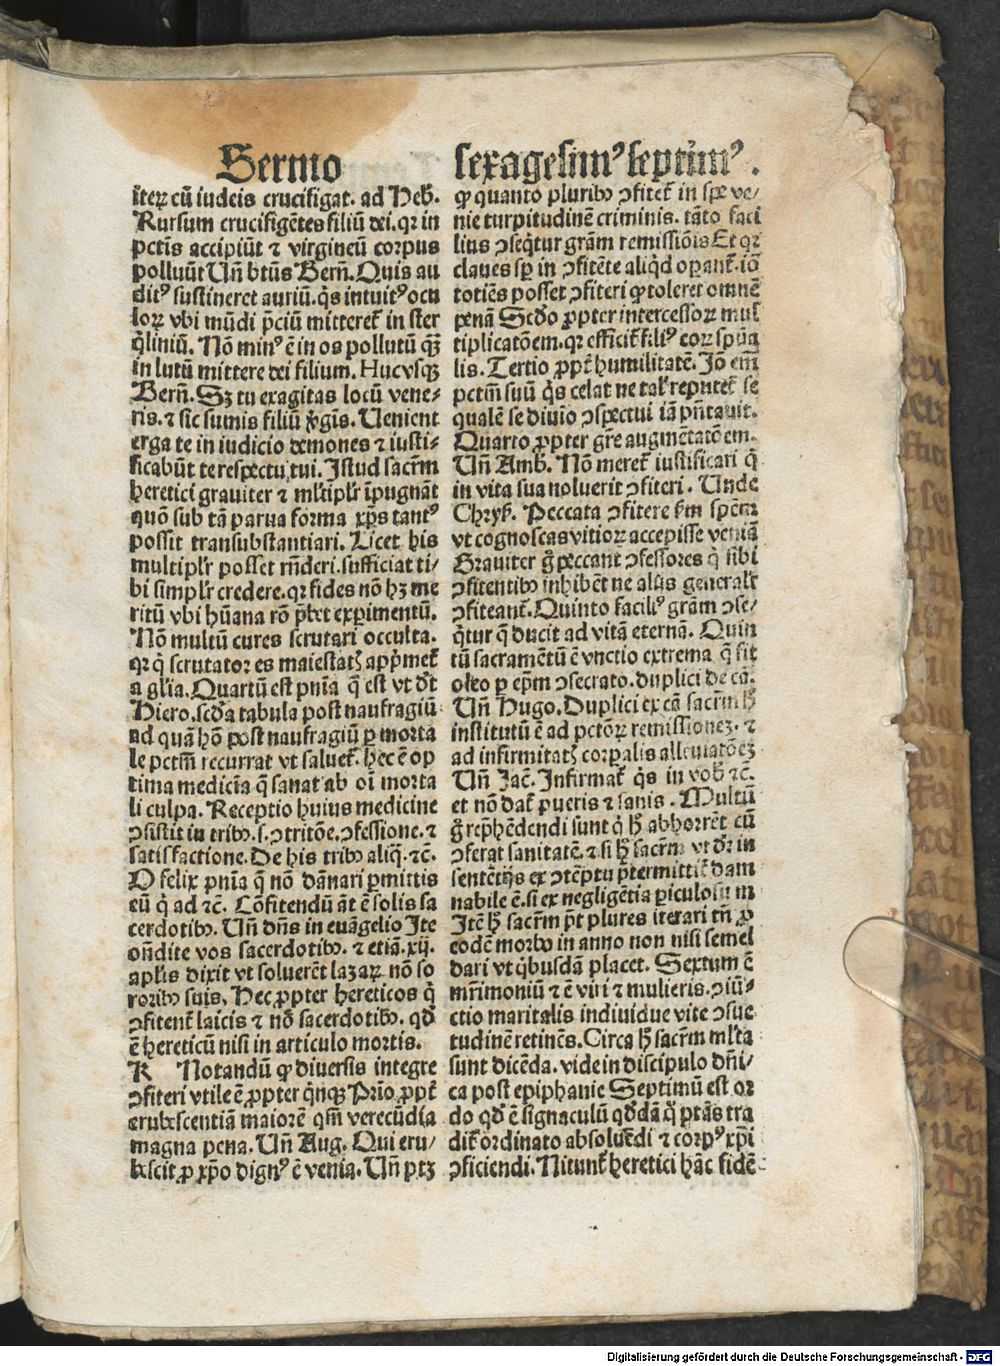 Sermo sexagesimꝰ septimꝰ.
iterꝝ cū iudeis crucifigāt. ad Heb̄.
Rursum crucifigētes filiū dei. qꝛ in
pctīs accipiūt ⁊ virgineū corpus
polluūt Un̄ btūs Bern̄. Quis au
ditꝰ sustineret auriū. q̄s intuitꝰ ocu
loꝝ vbi mūdi p̄ciū mitteret̄ in ster
q̄liniū. Nō minꝰ ē in os pollutū qꝫ̄
in lutū mittere dei filium. Hucvsqꝫ
Bern̄. Sꝫ tu exagitas locū vene⸗
ris. ⁊ sic sumis filiū v̄gīs. Uenient
erga te in iudicio demones ⁊ iusti⸗
ficabūt te respectu tui. Istud sacr̄m
heretici grauiter ⁊ ml̄tipl̄r īpugnāt
quō sub tā parua forma xp̄s tantꝰ
possit transubstantiari. Licet his
multipl̄r posset rn̄deri. sufficiat ti/
bi simpl̄r credere. qꝛ fides nō hꝫ me
ritū vbi hūana rō p̄bet experimentū.
Nō multū cures scrutari occulta.
qꝛ q̄ scrutator es maiestatꝭ app̄met̄
a gl̄ia. Quartū est pn̄ia q̄ est vt dīt
Hiero. scd̄a tabula post naufragiū
ad quā hō post naufragiū ꝑ morta
le pctm̄ recurrat vt saluet̄. hec ē op
tima medicīa q̄ sanat ab oī morta
li culpa. Receptio huius medicine
ↄsistit in tribꝰ. s. ↄtritōe. ↄfessione. ⁊
satisfactione. De his tribꝰ aliq̄. ⁊c̄.
O felix pn̄ia q̄ nō dānari ꝑmittis
eū q̄ ad ⁊c̄. Cōfitendū āt ē solis sa
cerdotibꝰ. Un̄ dn̄s in euāgelio Ite
on̄dite vos sacerdotibꝰ. ⁊ etiā. xij.
apl̄is dixit vt soluerēt lazaꝝ nō so
roribꝰ suis. Hec ꝓpter hereticos q̄
ↄfitent̄ laicis ⁊ nō sacerdotibꝰ. qd̄
ē hereticū nisi in articulo mortis.
K Notandū ꝙ diuersis integre
ↄfiteri vtile ē ꝓpter q̄nqꝫ Prīo ꝓpt̄
erubescentiā maiorē qm̄ verecūdia
magna pena. Un̄ Aug. Qui eru/
bescit ꝓ xp̄o dignꝰ ē venia. Un̄ ptꝫ
ꝙ quanto pluribꝰ ↄfitet̄ in spe ve/
nie turpitudinē criminis. tāto faci
lius ↄseq̄tur grām remissiōis Et qꝛ
claues sp̄ in ↄfitēte aliq̄d operant̄. iō
totiēs posset ↄfiteri ꝙ toleret omnē
penā Scd̄o ꝓpter intercessoꝝ mul
tiplicatōem. qꝛ efficit̄ filiꝰ eoꝝ spūa
lis. Tertio ꝓpt̄ humilitatē. Iō em̄
pctm̄ suū q̄s celat ne talꝭ reputet̄ se
qualē se diuīo ↄspectui iā pn̄tauit.
Quarto ꝓpter gr̄e augmētatōem.
Un̄ Amb̄. Nō meret̄ iustificari q̄
in vita sua noluerit ↄfiteri. Unde
Chryſ. Peccata ↄfitere fm̄ speciem
vt cognoscas vitioꝝ accepisse veniā
Grauiter g̊ peccant ↄfessores q̄ sibi
ↄfitentibꝰ inhibēt ne alijs general̄r
ↄfiteant̄. Quinto faciliꝰ grām ↄse/
q̄tur q̄ ducit ad vitā eternā. Quin
tū sacramētū ē vnctio extrema q̄ fit
oleo ꝑ ep̄m ↄsecrato. duplici de cā.
Un̄ Hugo. Duplici ex cā sacr̄m hꝭ
institutū ē ad pctōꝝ remissioneꝫ. ⁊
ad infirmitatꝭ corꝑalis alleuiatōeꝫ
Un̄ Jac̄. Infirmat̄ q̄s in vob̄ ⁊c̄.
et nō dat̄ pueris ⁊ sanis. Multū
g̊ rep̄hēdendi sunt q̄ hꝭ abhorrēt cū
ↄferat sanitatē. ⁊ si hꝭ sacr̄m vt dr̄ in
sentētijs ex ↄtēptu p̄termittit̄ dam
nabile ē. si ex negligētia ꝑiculosum
Itē hꝭ sacr̄m pt̄ plures iterari tn̄ ꝓ
eodē morbo in anno non nisi semel
dari vt q̄busdā placet. Sextum ē
mr̄imoniū ⁊ ē viri ⁊ mulieris. ↄiū⸗
ctio maritalis indiuidue vite ↄsue
tudinē retinēs. Circa hꝭ sacr̄m ml̄ta
sunt dicēda. vide in discipulo dn̄i⸗
ca post epiphanie Septimū est or
do qd̄ ē signaculū qd̄dā q̄ ptās tra
dit̄ ordinato absoluēdi ⁊ corpꝰ xp̄i
ↄficiendi. Nitunt̄ heretici hāc fidē
Digitalisierung gefördert durch die Deutsche Forschungsgemeinschaft - DFG